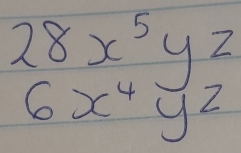 28x⁵yz
6x⁴yz